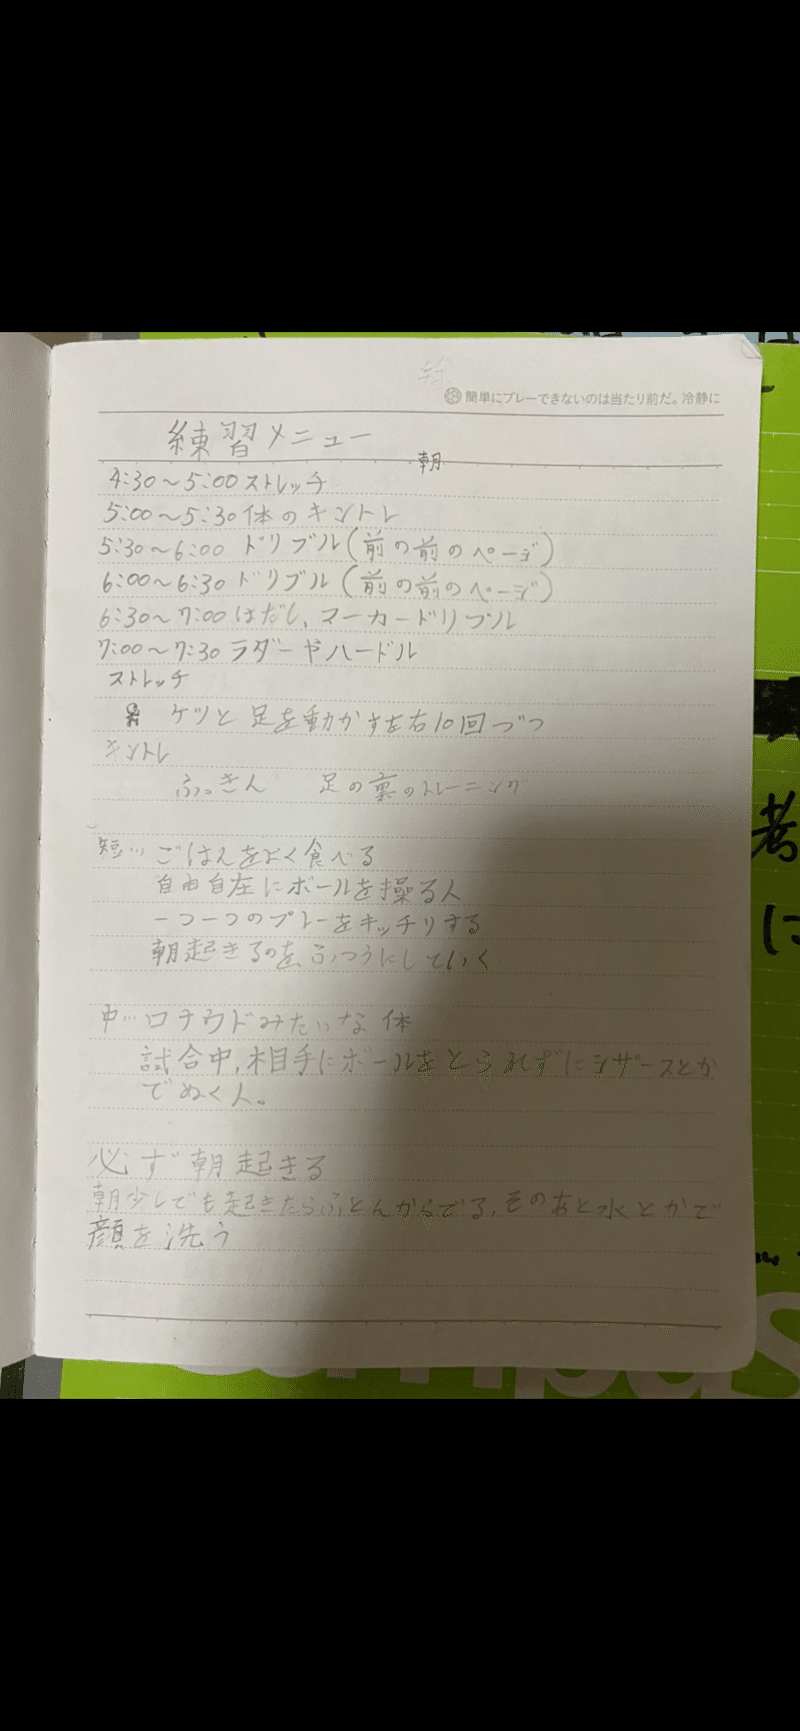 簡単にプレーできないのは当たり前だ。冷静に
練習メニュー
朝
4:30～5:00 ストレッチ
5:00～5:30 体のキントレ
5:30～6:00 ドリブル(前の前のページ)
6:00～6:30 ドリブル(前の前のページ)
6:30～7:00 はだし、マーカードリブル
7:00～7:30 ラダーやハードル
ストレッチ
ケツと足を動かす左右10回づつ
キントレ
ふっきん 足の裏のトレーニング
短… ごはんをよく食べる
自由自在にボールを操る人
一つ一つのプレーをキッチリする
朝起きるのを、ふつうにしていく
中…ロナウドみたいな体
試合中、相手にボールをとられずにシザースとか
でぬく人。
必ず朝起きる
朝少しでも起きたらふとんからでる、そのあと水とかで
顔を洗う
考
に